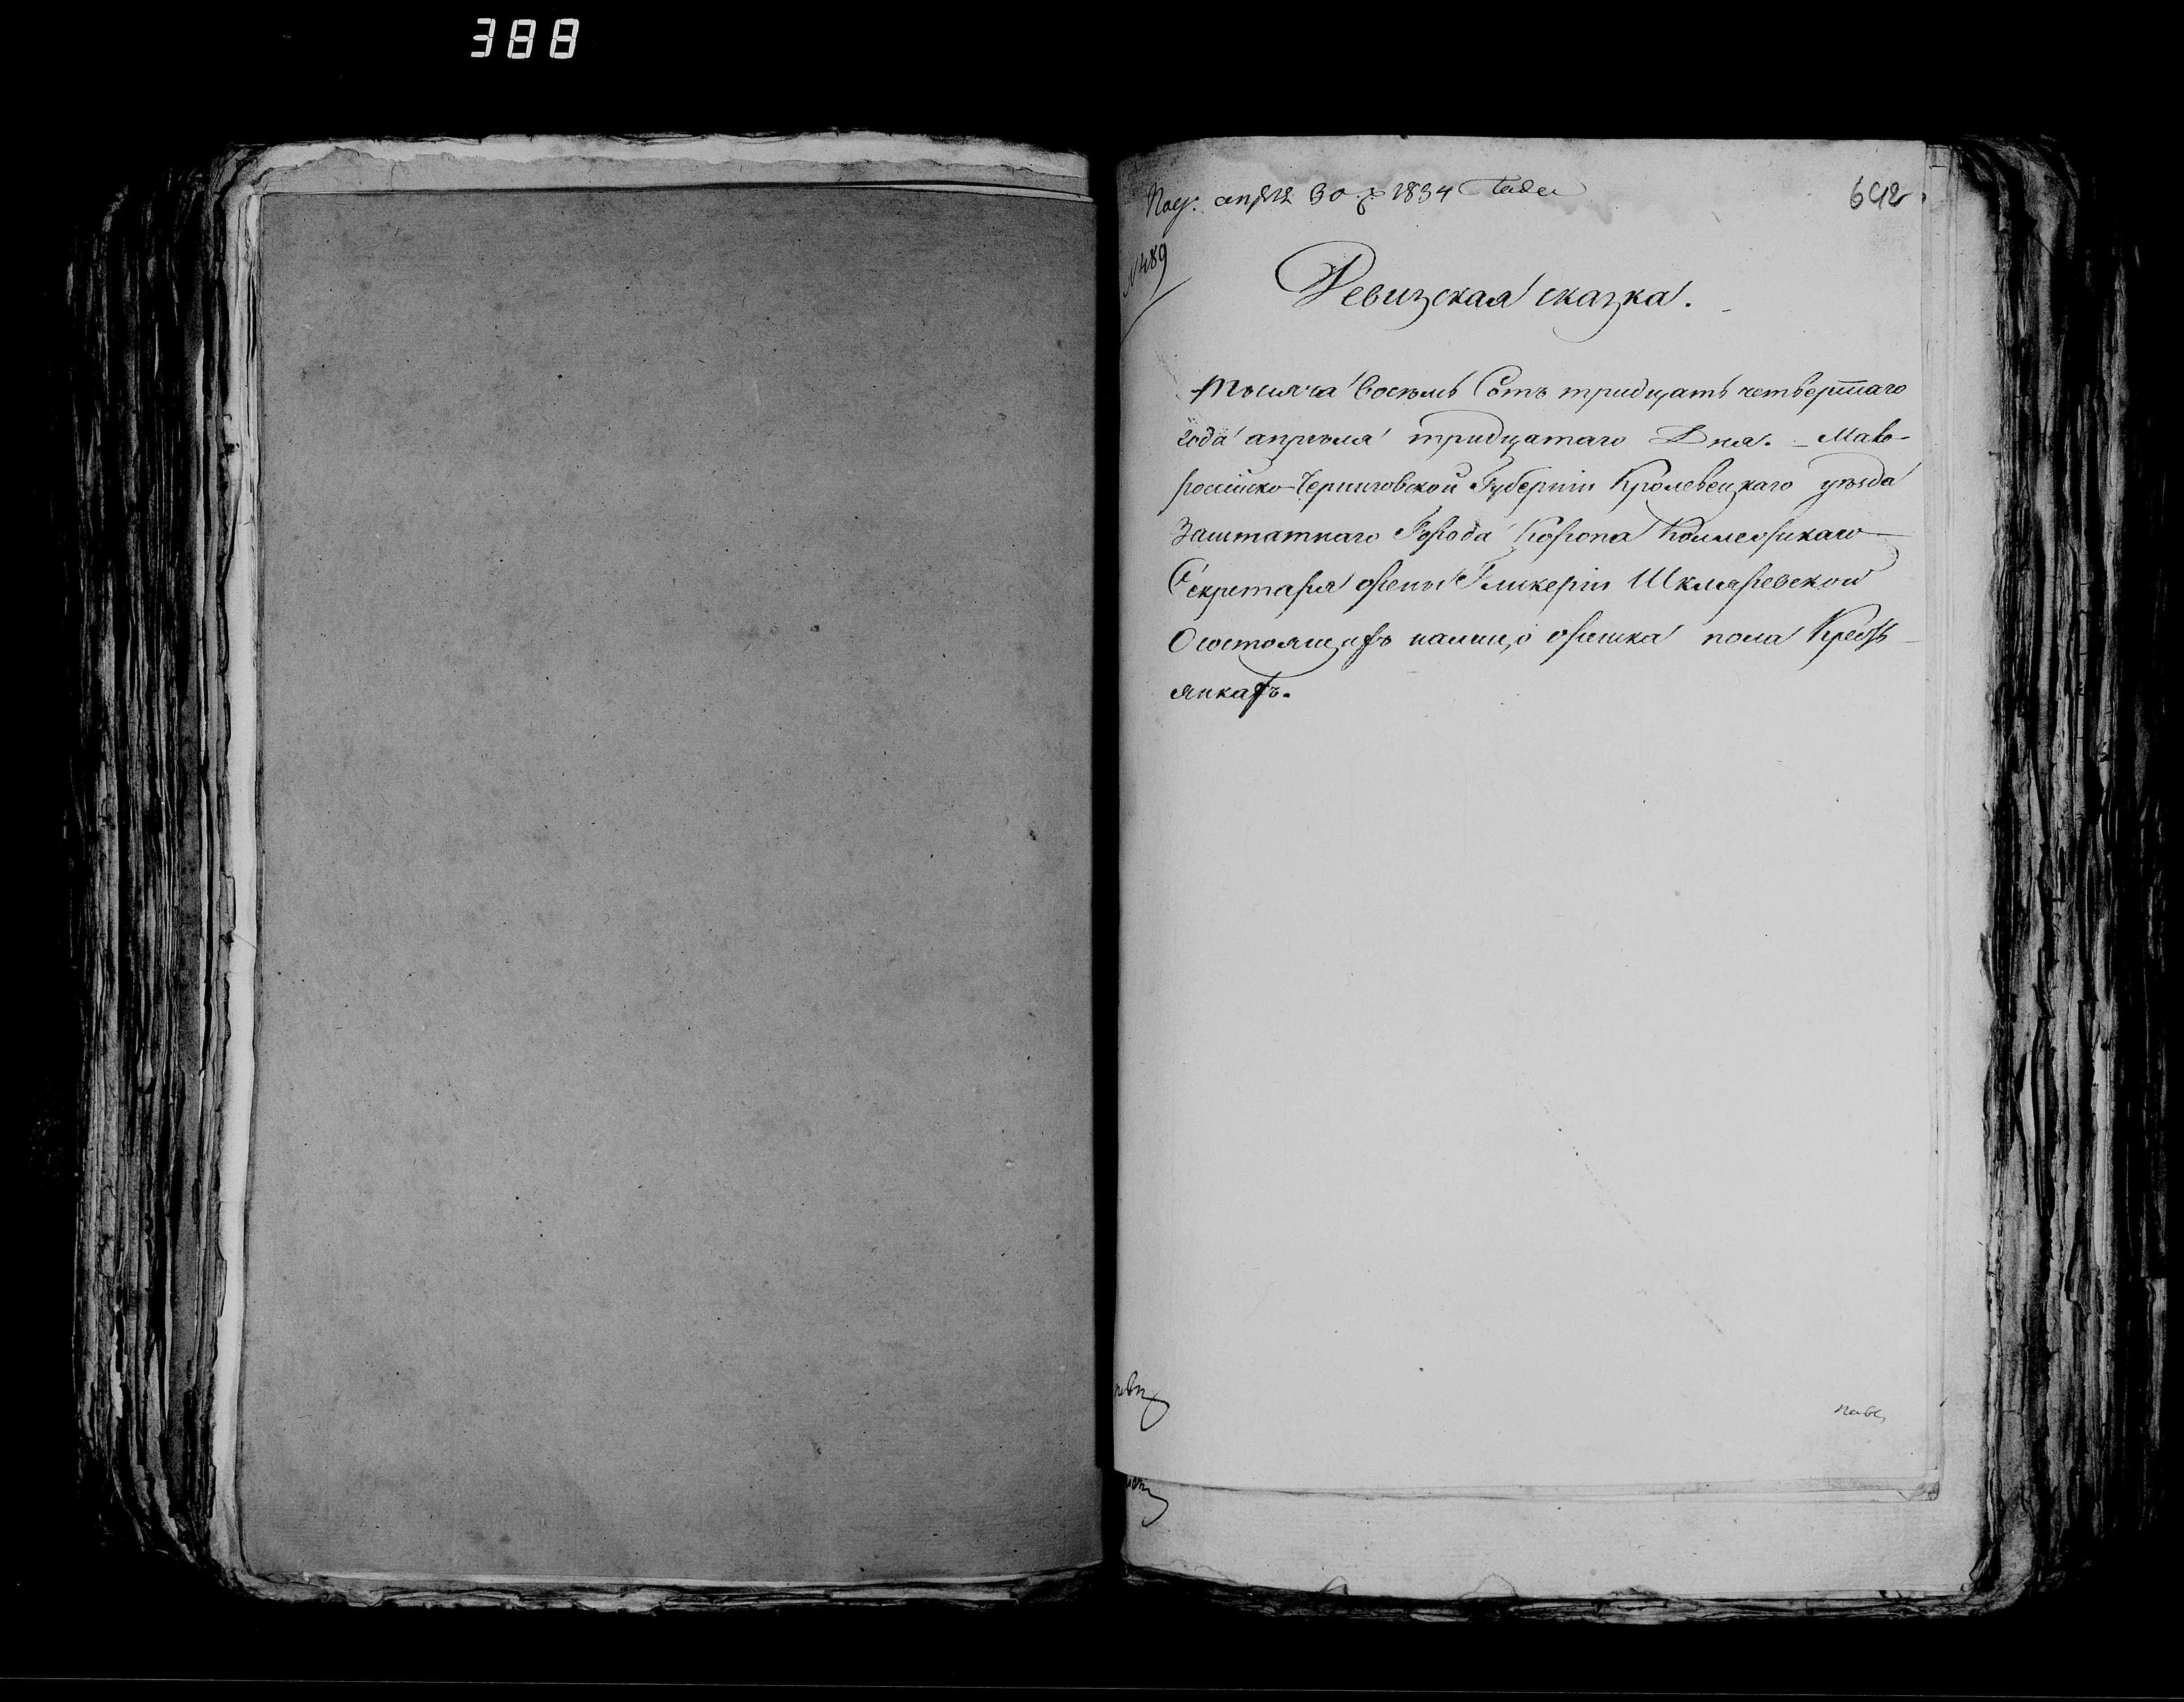 388
Под. апрѣля 30 д. 1834 Года
692
№ 489
Ревизская сказка.
Тысяча восемь Сотъ тридцать четвертаго
года апреля тридцатаго Дня. – Мало-
россійско-Черниговской Губерніи Кролевецкаго уезда
Заштатнаго Города Коропа Коллежскаго
Секретаря жены Гликеріи Шкляревской
О состоящихъ налицо женска пола Кресть-
янкахъ.